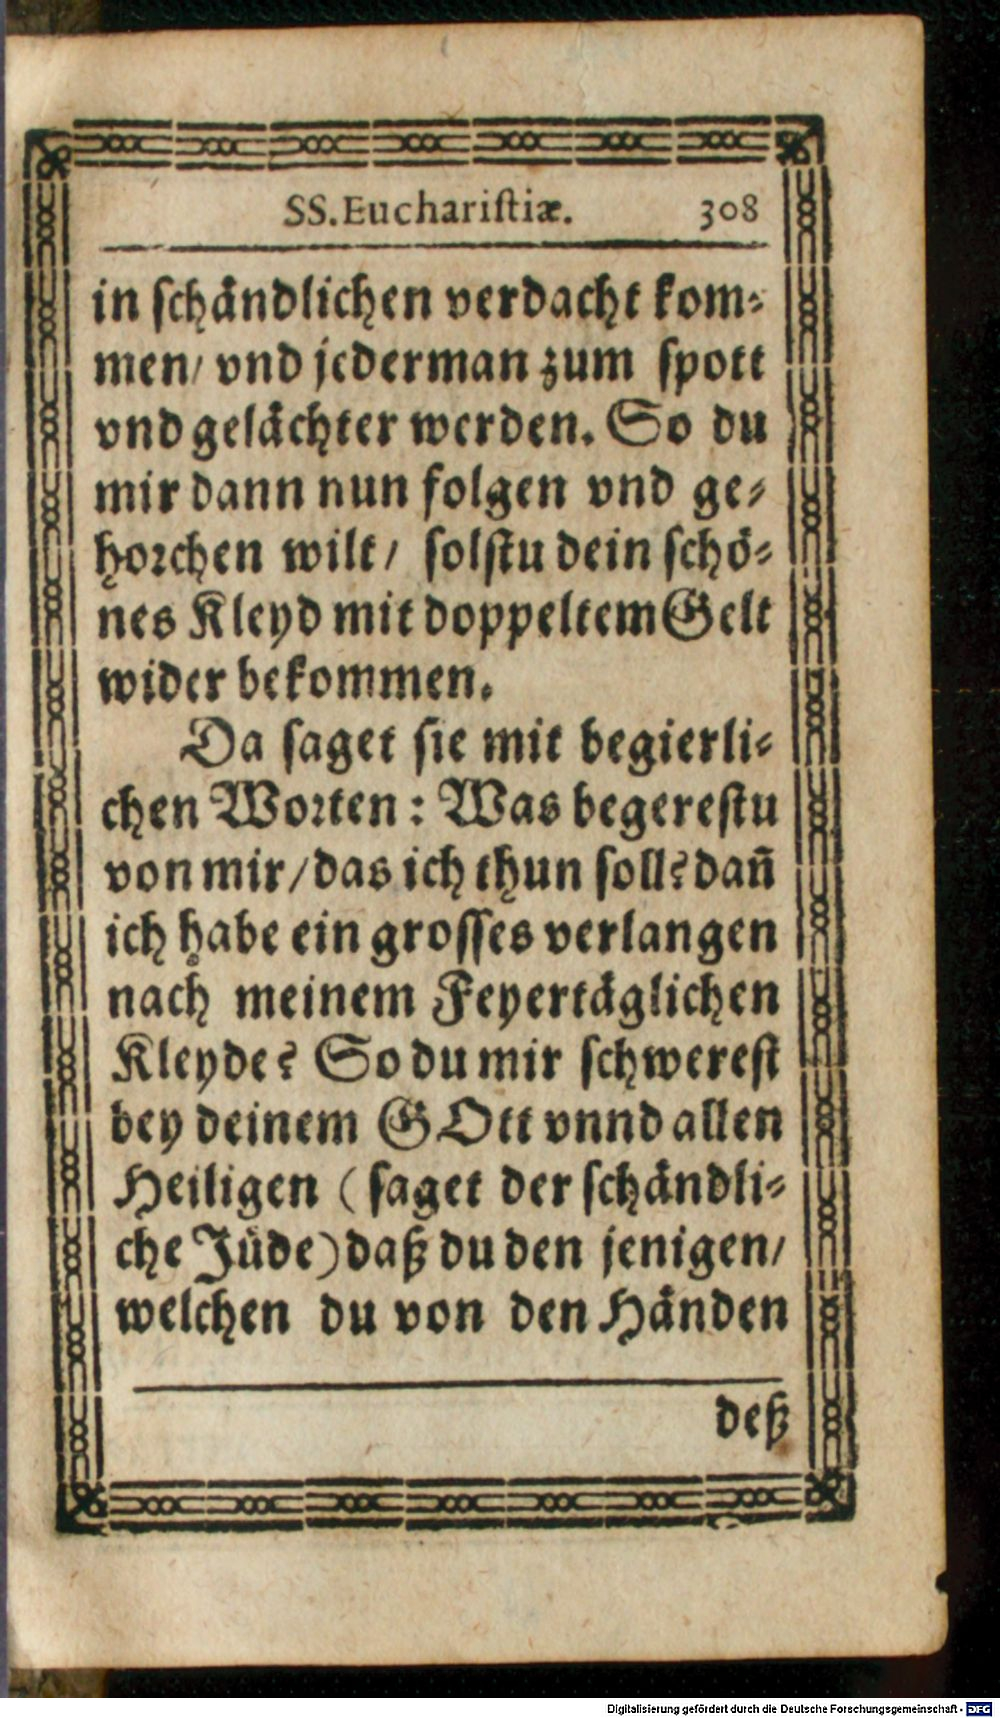 SS. Euchariſtiæ. 308
in ſchändlichen verdacht kom-
men/ vnd jederman zum ſpott
vnd gelächter werden. So du
mir dann nun folgen vnd ge-
horchen wilt/ ſolſtu dein ſchö-
nes Kleyd mit doppeltem Gelt
wider bekommen.
Da ſaget ſie mit begierli-
chen Worten: Was begereſtu
von mir/ das ich thun ſoll? dañ
ich habe ein groſſes verlangen
nach meinem Feyertäglichen
Kleyde? So du mir ſchwereſt
bey deinem GOtt vnnd allen
Heiligen (ſaget der ſchändli-
che Jüde) daß du den jenigen/
welchen du von den Händen
deß
Digitalisierung gefördert durch die Deutsche Forschungsgemeinschaft - DFG